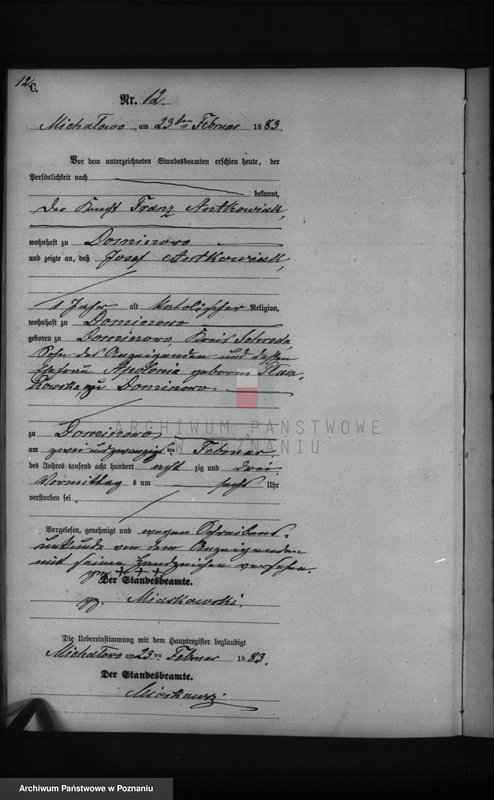 12/C.
Nr. 12.
Michałowo am 23ten Februar 1883.
Vor dem unterzeichneten Standesbeamten erschien heute, der
Persönlichkeit nach
bekannt,
der Knecht Franz Antkowiak,
wohnhaft zu Dominowo
und zeigte an, daß Josef Antkowiak,
1 Jahr alt katolischer Religion,
wohnhaft zu Dominowo
geboren zu Dominowo, Kreis Schroda
Sohn des Anzeigenden und dessen
Ehefrau Apolonia geborne
zu Dominowo
zu Dominowo,
am zwei und zwanzigsten Februar
des Jahres tausend acht hundert acht zig und drei
Vormittag s um sechs Uhr
verstorben sei.
Vorgelesen, genehmigt und wegen Schreibens-
unkunde von dem Anzeigenden
mit seinen Handzeichen versehen.
gez. + + +
Der Standesbeamte.
gez. Miaskowski.
Die Uebereinstimmung mit dem Hauptregister beglaubigt
Michałowo am 23ten Februar 1883.
Der Standesbeamte.
ARCHIWUM PAŃSTWOWE
W POZNANIU
Archiwum Państwowe w Poznaniu